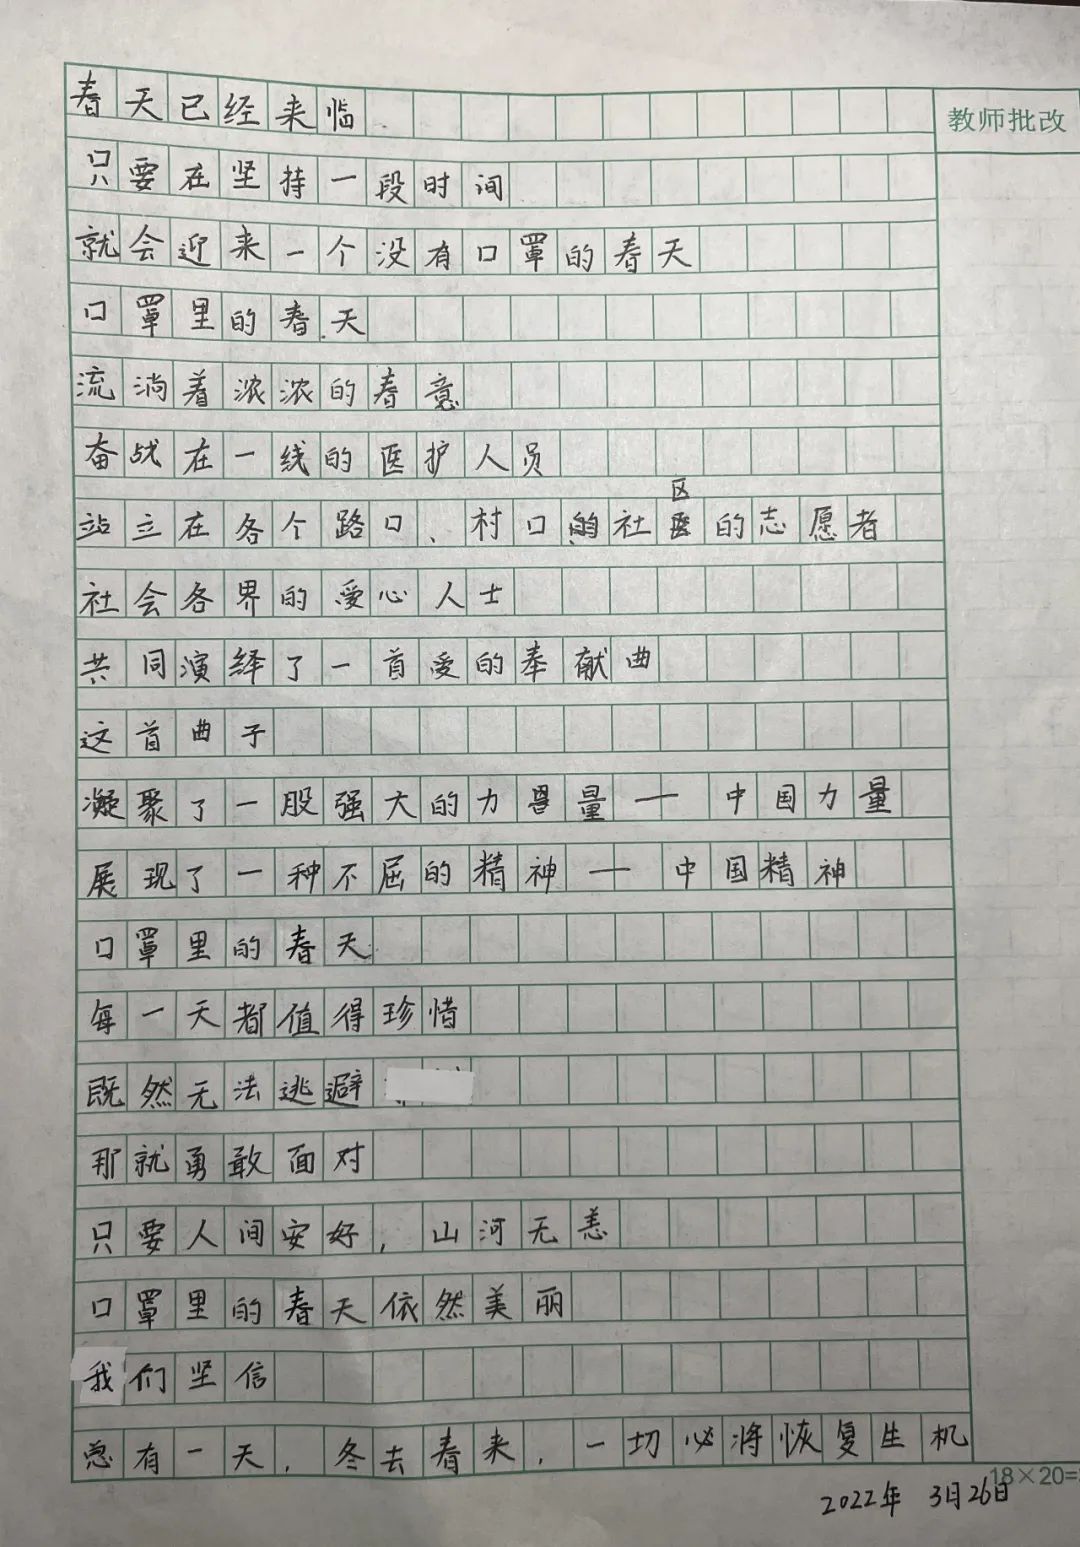 春天已经来临
教师批改
只要在坚持一段时间
就会迎来一个没有口罩的春天
口罩里的春天
流淌着浓浓的春意
奋战在一线的医护人员
站立在各个路口、村口的社区的志愿者
社会各界的爱心人士
共同演绎了一首爱的奉献曲
这首曲子
凝聚了一股强大的力量——中国力量
展现了一种不屈的精神——中国精神
口罩里的春天
每一天都值得珍惜
既然无法逃避
那就勇敢面对
只要人间安好,山河无恙
口罩里的春天依然美丽
我们坚信
总有一天,冬去春来,一切必将恢复生机
18×20=
2022年 3月26日